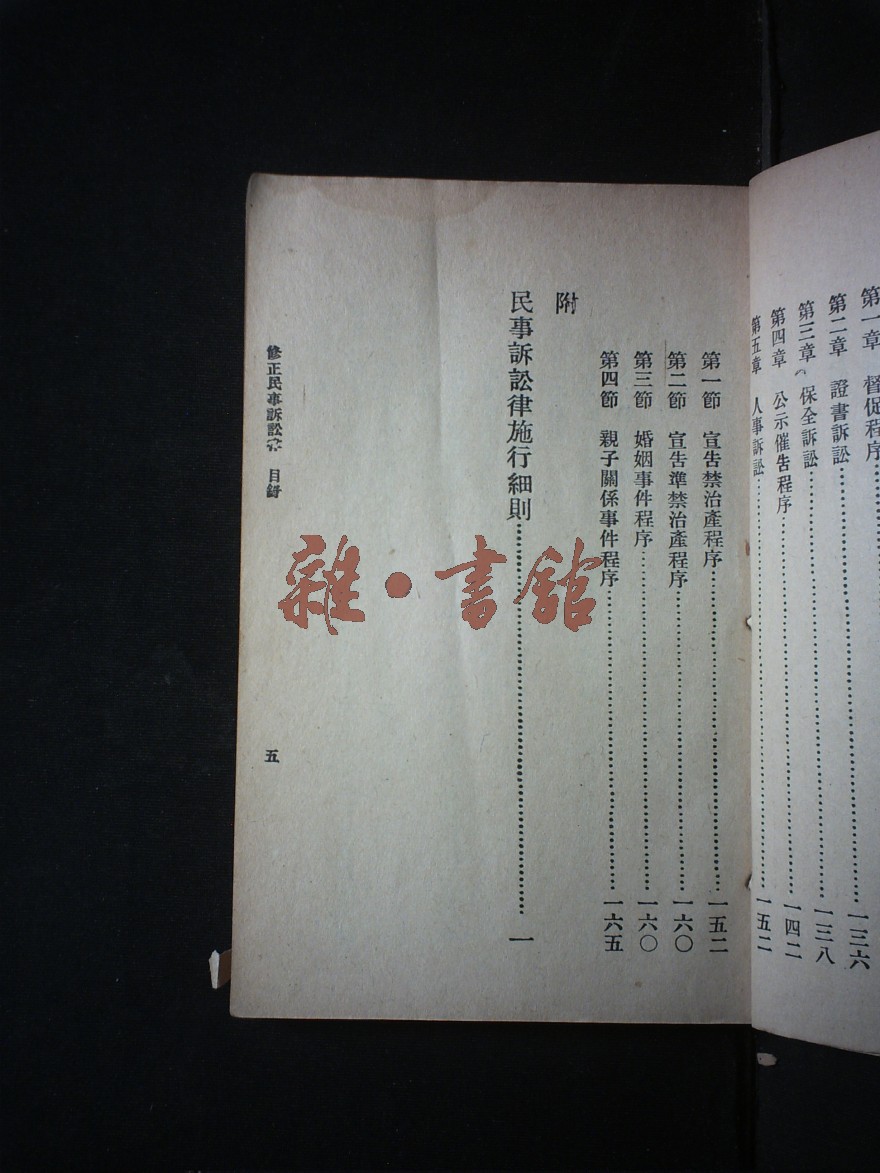 第一章　督促程序
第二章　證書訴訟……一三六
第三章　保全訴訟……一三八
第四章　公示催告程序……一四二
第五章　人事訴訟……一五二
第一節　宣告禁治產程序……一五二
第二節　宣告準禁治產程序……一六〇
第三節　婚姻事件程序……一六〇
第四節　親子關係事件程序……一六五
附
民事訴訟律施行細則……一
修正民事訴訟律　目錄　五
雜·書館